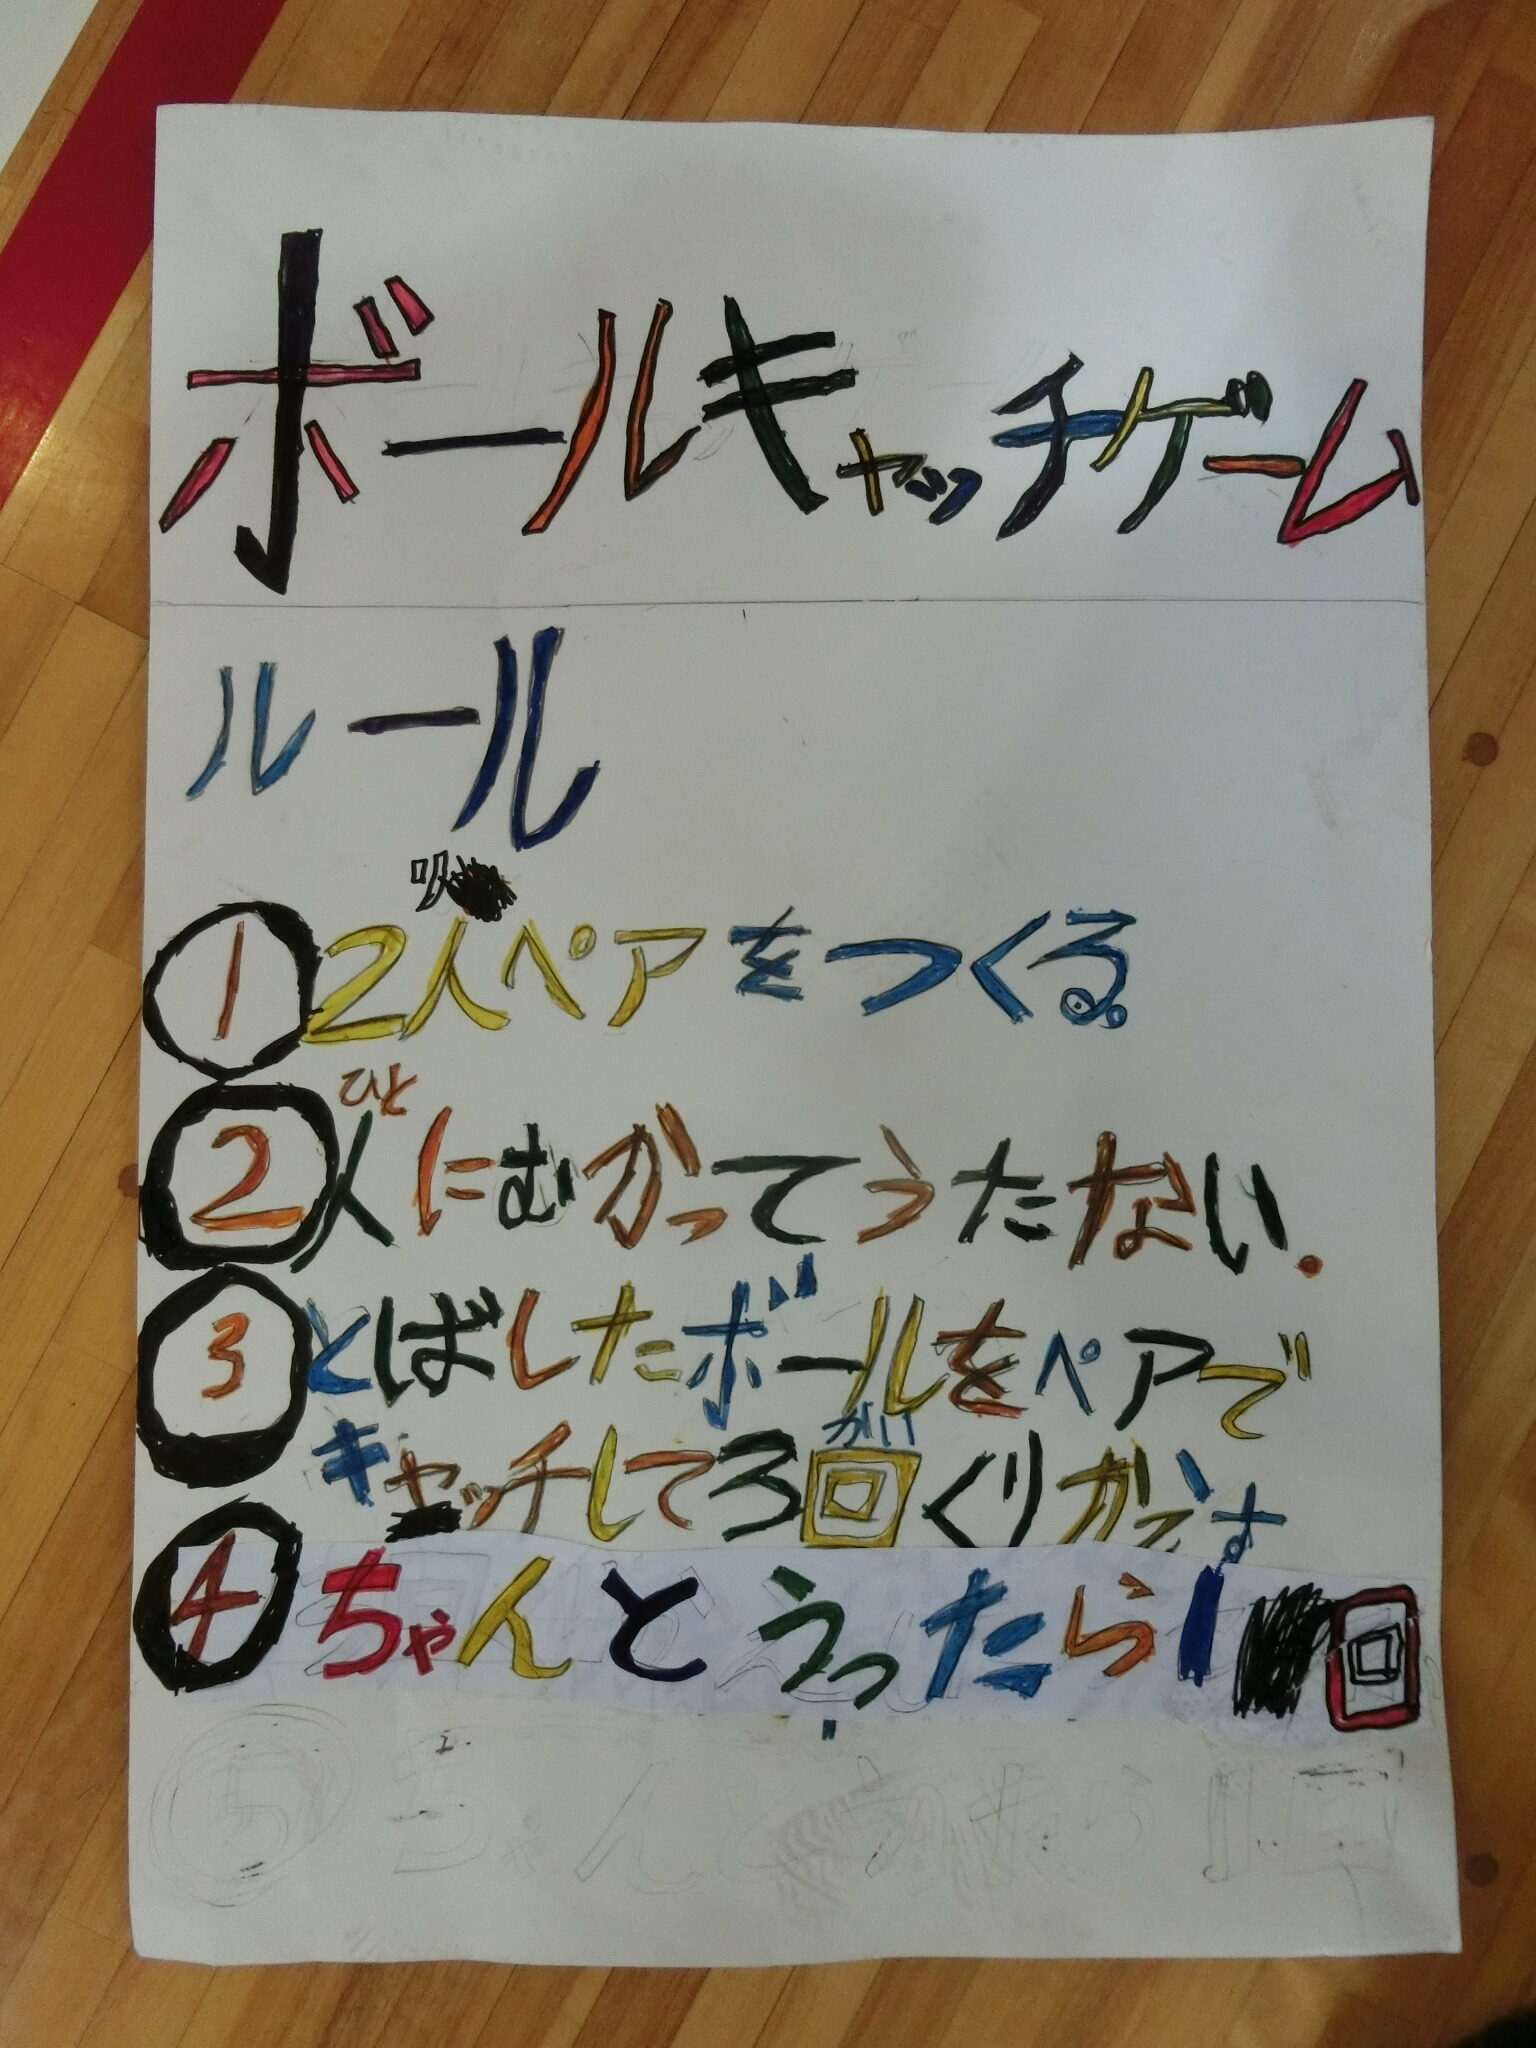 ボールキャッチゲーム
ルール
① 2人ペアをつくる。
ひと
② 人にむかってうたない.
③ とばしたボールをペアで
かい
キャッチして3回くりかえす
④ ちゃんとうったら1回
⑤ ちゃんとうったら1回